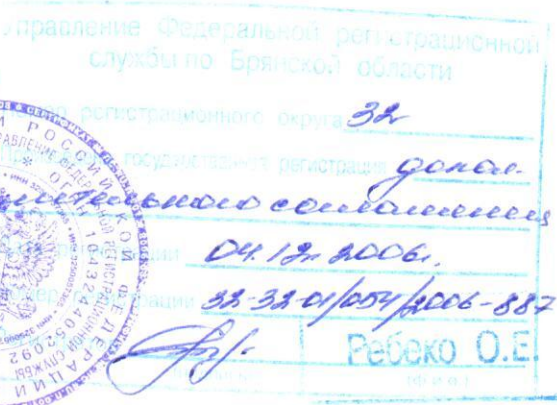 Управление Федеральной регистрационной
службы по Брянской области
Номер регистрационного округа 32
государственная регистрация допол-
нительного соглашения
Дата регистрации 04.12.2006г.
Номер регистрации 32-32-01/054/2006-887
Ребеко О.Е.
(Ф.И.О.)